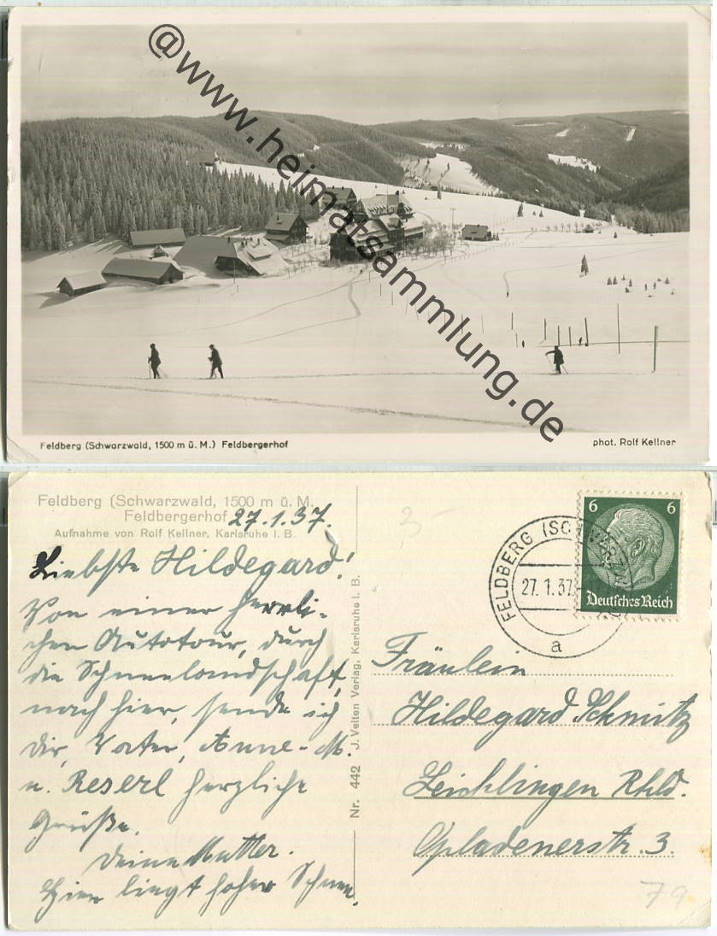 @www.heimatsammlung.de
Feldberg (Schwarzwald, 1500 m ü. M.) Feldbergerhof
phot. Rolf Kellner
Feldberg (Schwarzwald, 1500 m ü. M.
Feldbergerhof 27.1.37.
Aufnahme von Rolf Kellner, Karlsruhe i. B.
Liebste Hildegard!
Von einer herrli-
chen Autotour, durch
die Schneelandschaft,
nach hier, sende ich
dir, Vater, Anne-M.
u. Reserl herzliche
Grüße.
Deine Mutter.
Hier liegt hoher Schnee.
Nr. 442 J. Velten Verlag, Karlsruhe i. B.
6 6
Deutsches Reich
FELDBERG (SCHWARZW
27.1.37
a
Fräulein
Hildegard Schmitz
Leichlingen Rhld.
Opladenerstr. 3.
79